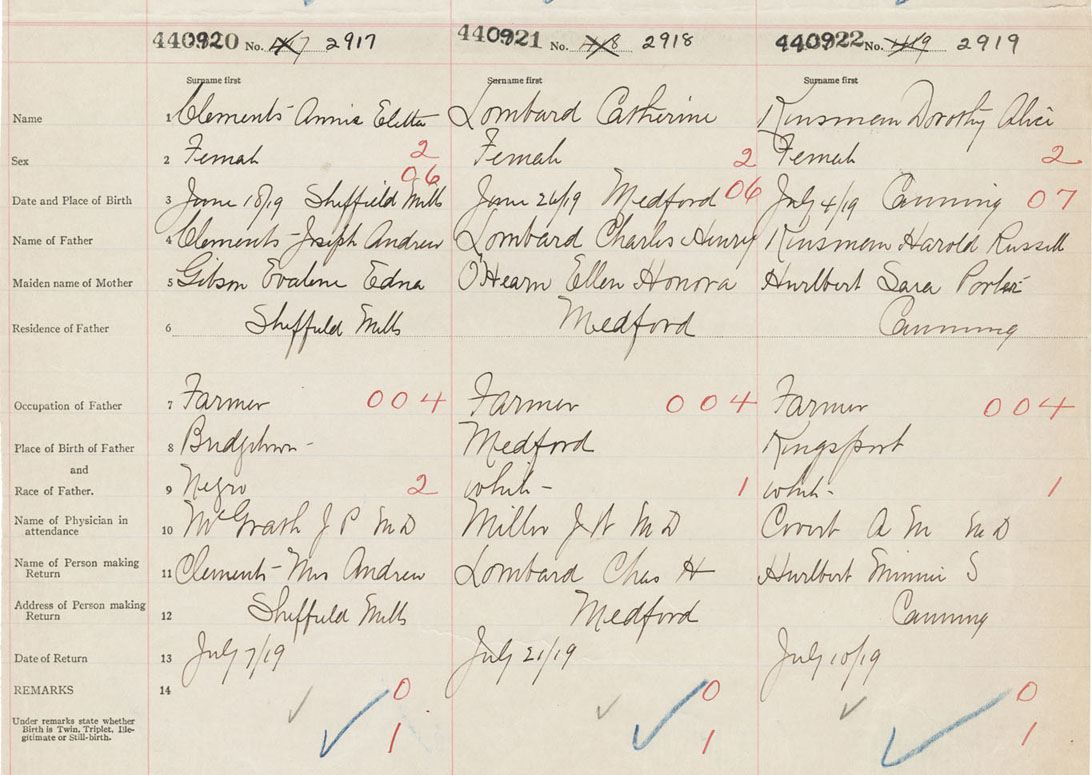 440920 No. 417 2917 440921 No. 418 2918 440922 No. 419 2919
Surname first Surname first Surname first
Name 1 Clements Annie Eletta Lombard Catherine Kinsman Dorothy Alice
Sex 2 Female 2 Female 2 Female 2
06 06 07
Date and Place of Birth 3 June 18/19 Sheffield Mills June 26/19 Medford July 4/19 Canning
Name of Father 4 Clements Joseph Andrew Lombard Charles Henry Kinsman Harold Russell
Maiden name of Mother 5 Gibson Evalene Edna O'Hearn Ellen Honora Hurlbert Sara Porter
Residence of Father 6 Sheffield Mills Medford Canning
Occupation of Father 7 Farmer 004 Farmer 004 Farmer 004
Place of Birth of Father 8 Bridgetown Medford Kingsport
and
Race of Father. 9 Negro 2 White 1 White 1
Name of Physician in
attendance 10 McGrath J P M D Miller J W M D Covert A M M D
Name of Person making
Return 11 Clements Mrs Andrew Lombard Chas H Hurlbert Minnie S
Address of Person making
Return 12 Sheffield Mills Medford Canning
Date of Return 13 July 7/19 July 21/19 July 10/19
REMARKS 14 0 0 0
Under remarks state whether
Birth is Twin, Triplet, Ille-
gitimate or Still-birth. 1 1 1